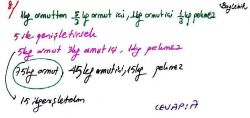 8)
1kg armuttan 5/3 kg armut içi, 1kg armut içi 1/3 kg pekmez
5 ile genişletirsek
5kg armut 3kg armut içi, 1kg pekmez
75kg armut, 45kg armut içi, 15kg pekmez
15 ile genişletelim
CEVAP: A